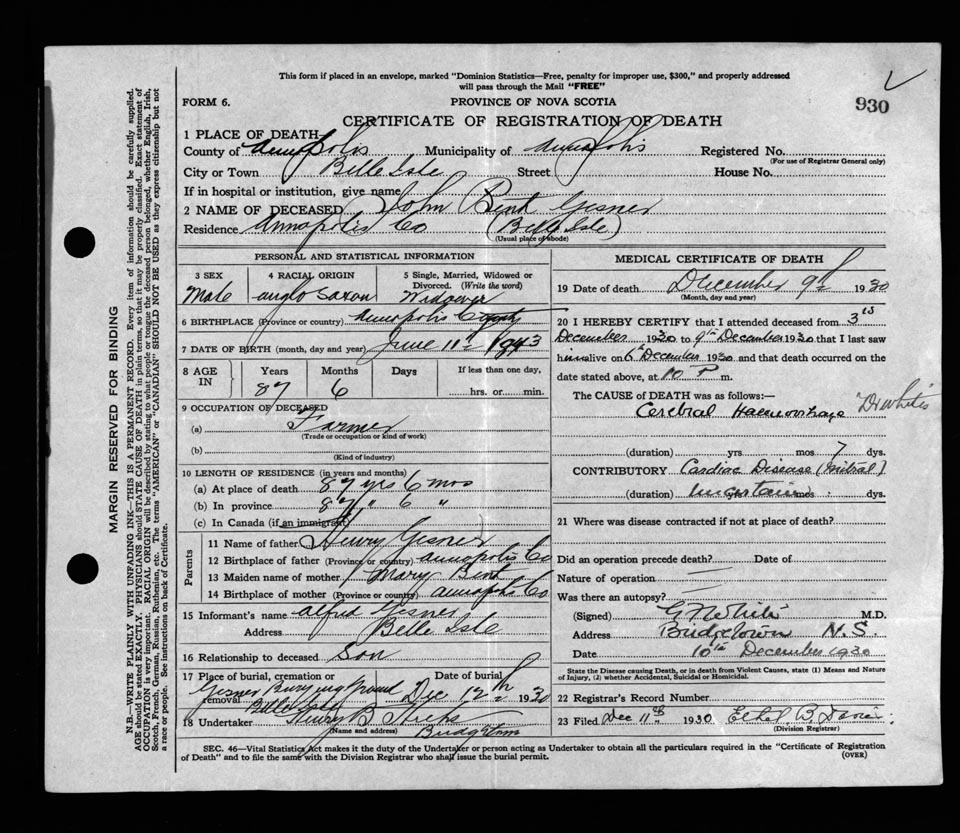 This form if placed in an envelope, marked "Dominion Statistics—Free, penalty for improper use, $300," and properly addressed
will pass through the Mail "FREE"
930
FORM 6. PROVINCE OF NOVA SCOTIA
CERTIFICATE OF REGISTRATION OF DEATH
1 PLACE OF DEATH—
County of Annapolis Municipality of Annapolis Registered No.
(For use of Registrar General only)
City or Town Belle Isle Street House No.
If in hospital or institution, give name
2 NAME OF DECEASED John Bent Gesner
Residence Annapolis Co (Belle Isle)
(Usual place of abode)
PERSONAL AND STATISTICAL INFORMATION
3 SEX 4 RACIAL ORIGIN 5 Single, Married, Widowed or
Divorced. (Write the word)
Male anglo saxon Widower
6 BIRTHPLACE (Province or country) Annapolis County
7 DATE OF BIRTH (month, day and year) June 11th 1843
8 AGE IN Years Months Days If less than one day,
87 6 hrs. or min.
9 OCCUPATION OF DECEASED
(a) Farmer
(Trade or occupation or kind of work)
(b)
(Kind of industry)
10 LENGTH OF RESIDENCE (in years and months)
(a) At place of death 87 yrs 6 mos
(b) In province 87 " 6 "
(c) In Canada (if an immigrant)
Parents
11 Name of father Henry Gesner
12 Birthplace of father (Province or country) annapolis Co
13 Maiden name of mother Mary Bent
14 Birthplace of mother (Province or country) annapolis Co
15 Informant's name alfred Gesner
Address Belle Isle
16 Relationship to deceased Son
17 Place of burial, cremation or Date of burial
removal Gesner Burying Ground Dec 12th 1930
Belle Isle
18 Undertaker Henry B Hicks
(Name and address) Bridgetown
MEDICAL CERTIFICATE OF DEATH
19 Date of death December 9th 1930
(Month, day and year)
20 I HEREBY CERTIFY that I attended deceased from 3rd
December 1930 to 9th December 1930 that I last saw
him alive on 6th December 1930 and that death occurred on the
date stated above, at 10 P m.
The CAUSE of DEATH was as follows:—
Cerebral Haemorrhage
(duration) yrs. mos 7 dys.
CONTRIBUTORY Cardiac Disease (Mitral)
(duration) Uncertain yrs. mos. dys.
21 Where was disease contracted if not at place of death?
Did an operation precede death? Date of
Nature of operation —
Was there an autopsy? —
(Signed) White M.D.
Address Bridgetown N.S.
Date 10th December 1930
State the Disease causing Death, or in death from Violent Causes, state (1) Means and Nature
of Injury, (2) whether Accidental, Suicidal or Homicidal.
22 Registrar's Record Number
23 Filed Dec 11th 1930 Ethel B
(Division Registrar)
SEC. 46—Vital Statistics Act makes it the duty of the Undertaker or person acting as Undertaker to obtain all the particulars required in the "Certificate of Registration
of Death" and to file the same with the Division Registrar who shall issue the burial permit. (OVER)
MARGIN RESERVED FOR BINDING
N.B.—WRITE PLAINLY WITH UNFADING INK—THIS IS A PERMANENT RECORD. Every item of information should be carefully supplied.
AGE should be stated EXACTLY. PHYSICIANS should STATE CAUSE OF DEATH in plain terms, so that it may be properly classified. Exact statement of
OCCUPATION is very important. RACIAL ORIGIN will be described by stating to what people or tongue the deceased person belonged, whether English, Irish,
Scotch, French, German, Russian, Ruthenian, etc. The terms "AMERICAN" or "CANADIAN" SHOULD NOT BE USED as they express citizenship but not
a race or people. See instructions on back of Certificate.